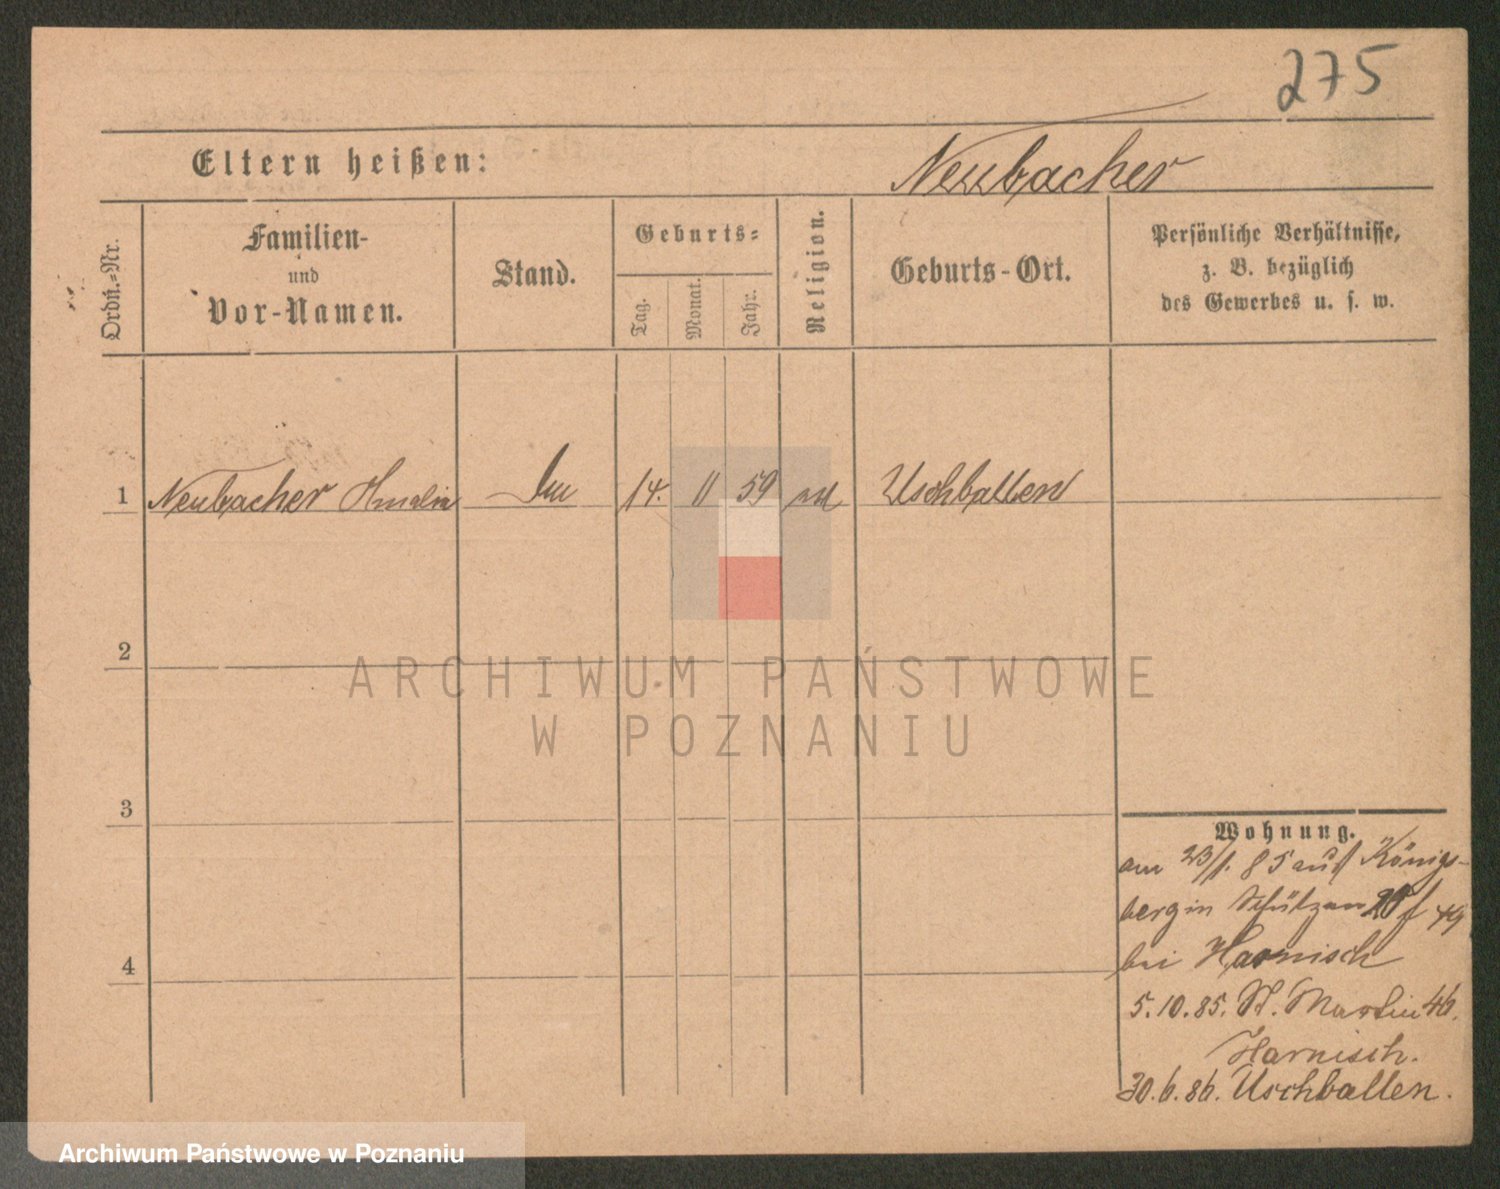 275
Eltern heißen:
Neubacher
Ordn.-Nr.
Familien-
und
Vor-Namen.
Stand.
Geburts-
Tag.
Monat.
Jahr.
Religion.
Geburts-Ort.
Persönliche Verhältnisse,
z. B. bezüglich
des Gewerbes u. s. w.
1 Neubacher Amalia 14. 11 59 Uschballen
2
3
4
Wohnung.
am 23/1. 85 aus Königs-
berg in Schützen
bei Harnisch
5.10.85. St. Martin 46.
Harnisch.
30.6.86. Uschballen.
ARCHIWUM PAŃSTWOWE
W POZNANIU
Archiwum Państwowe w Poznaniu